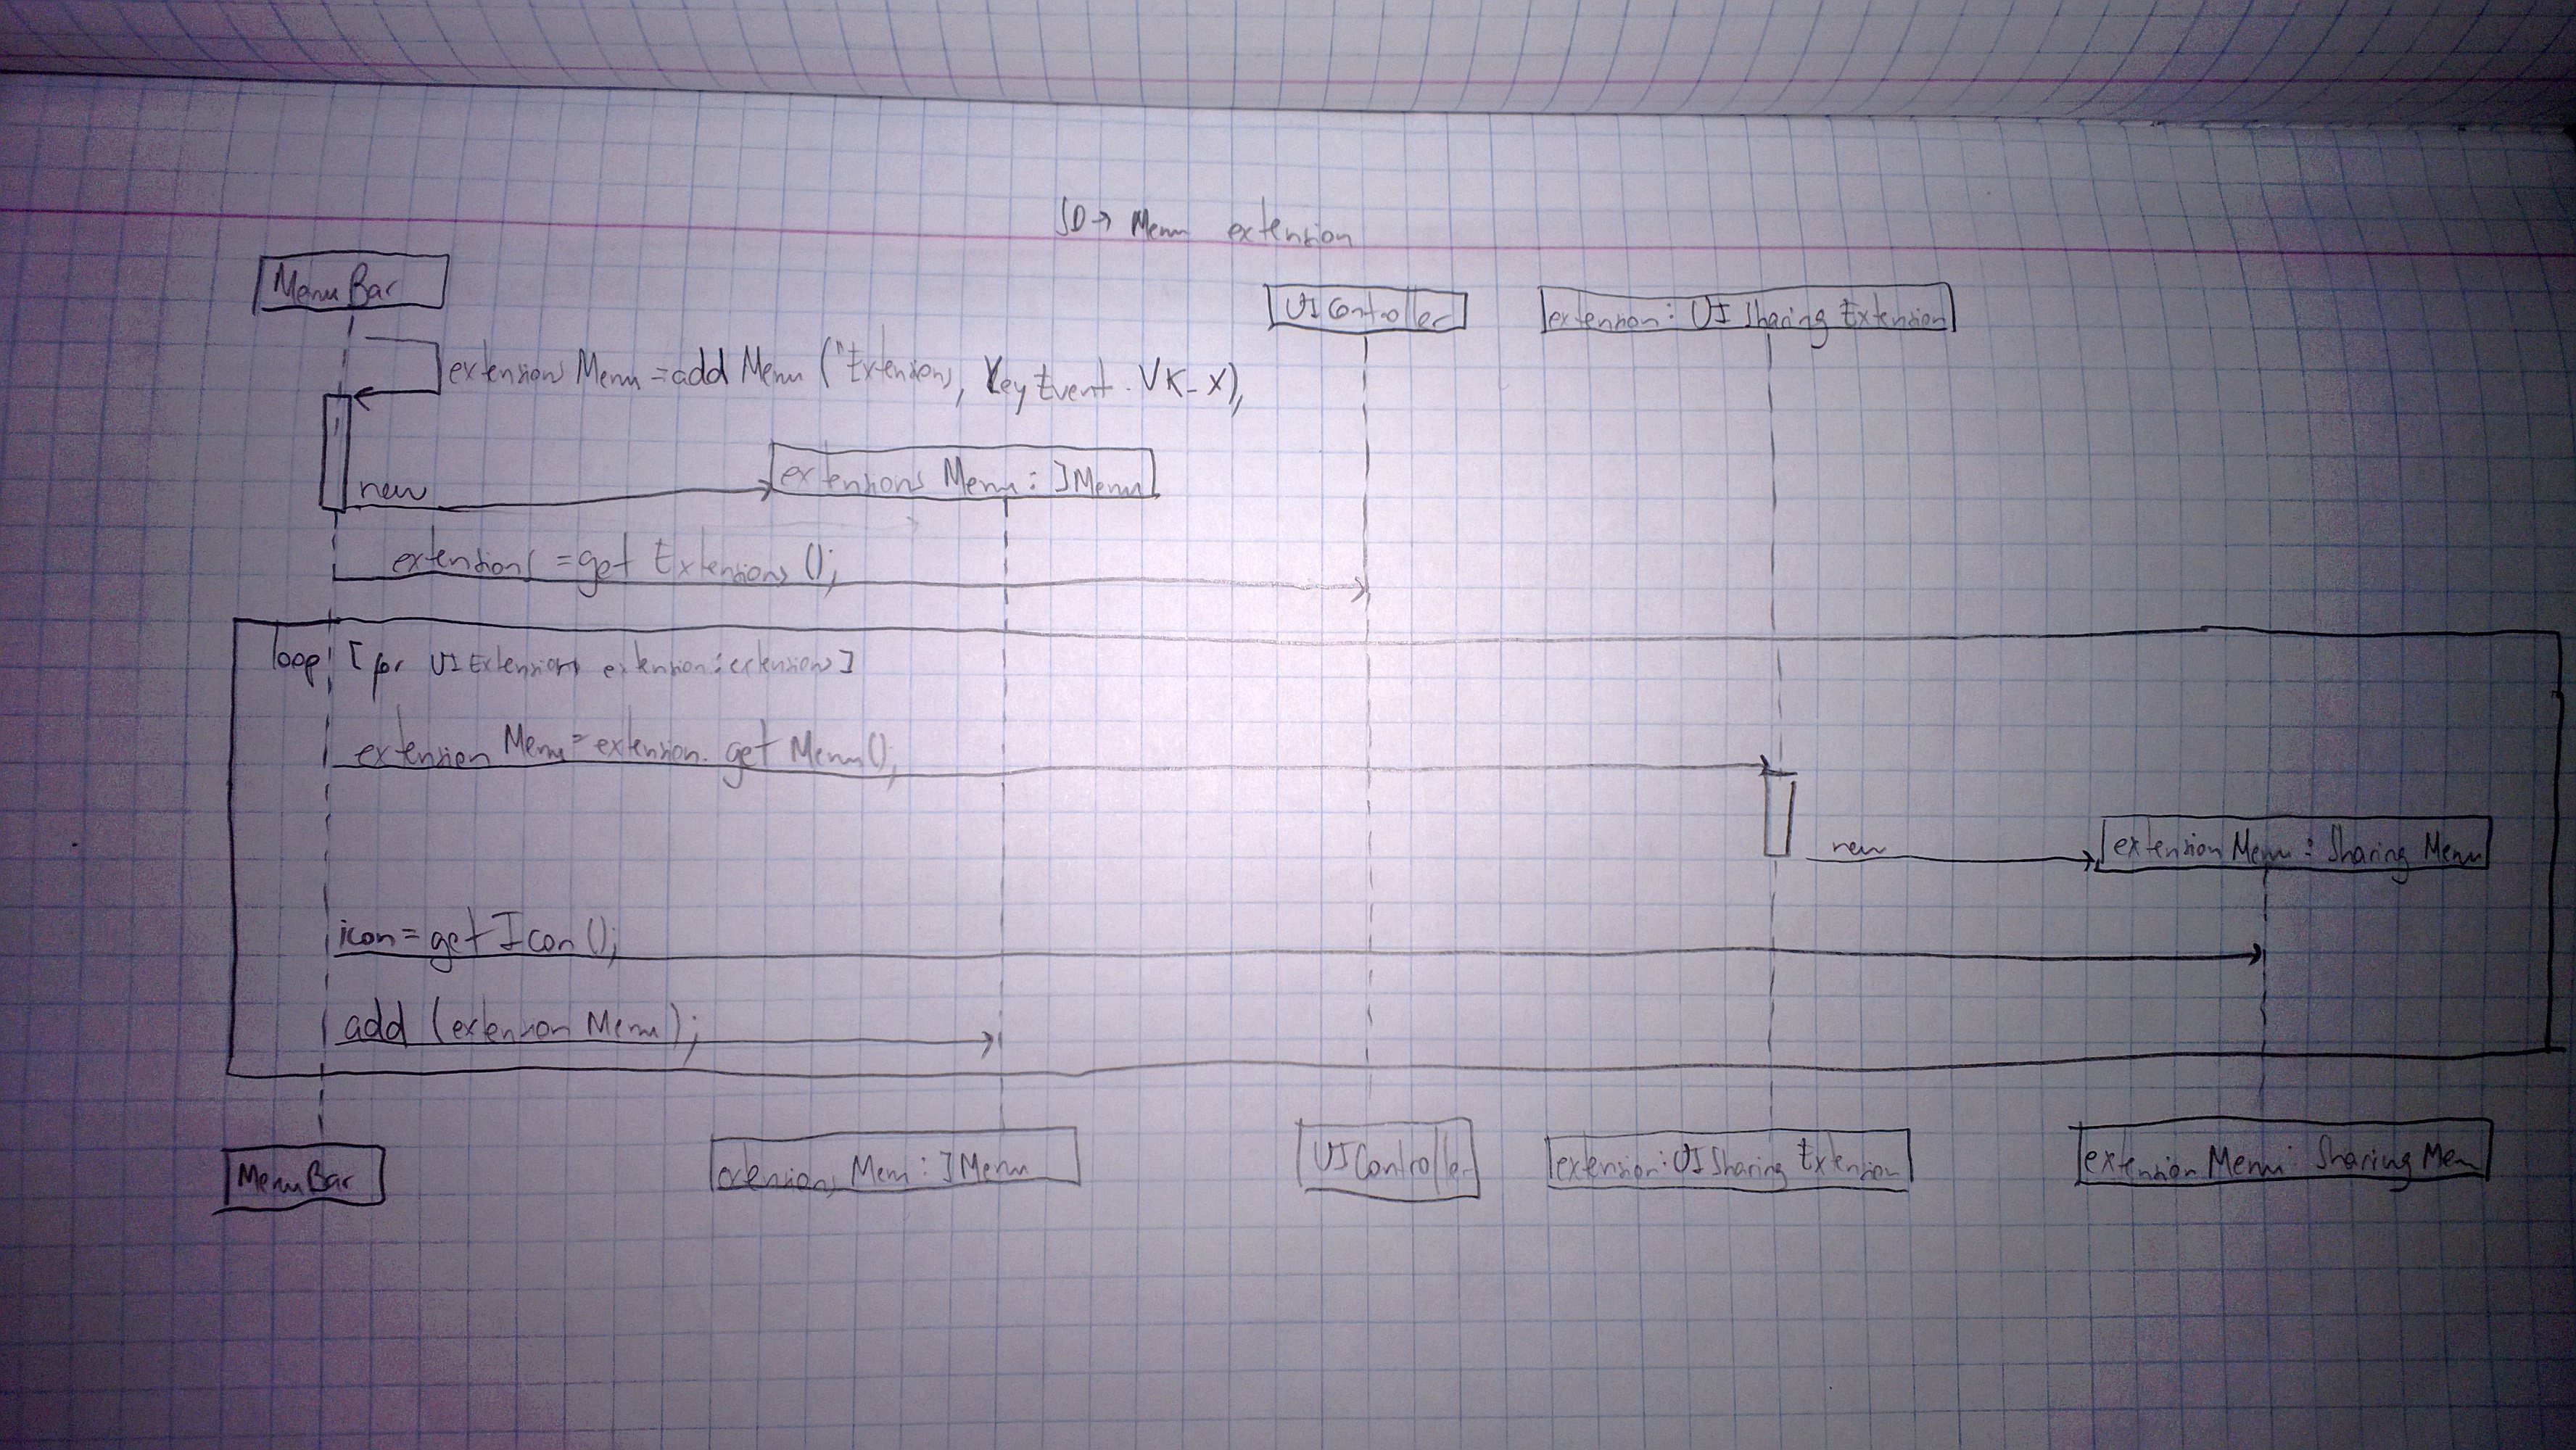 SD→ Menu extension
MenuBar
UIController
extension: UI Sharing Extension
extensions Menu = add Menu ("Extensions, KeyEvent.VK_X),
new
extensions Menu: JMenu
extensions = get Extensions ();
loop [for UIExtensions extension: extensions]
extension Menu = extension. get Menu();
new
extension Menu: Sharing Menu
icon = get Icon ();
add (extension Menu);
MenuBar
extensions Menu: JMenu
UIController
extension: UI Sharing Extension
extension Menu: Sharing Menu